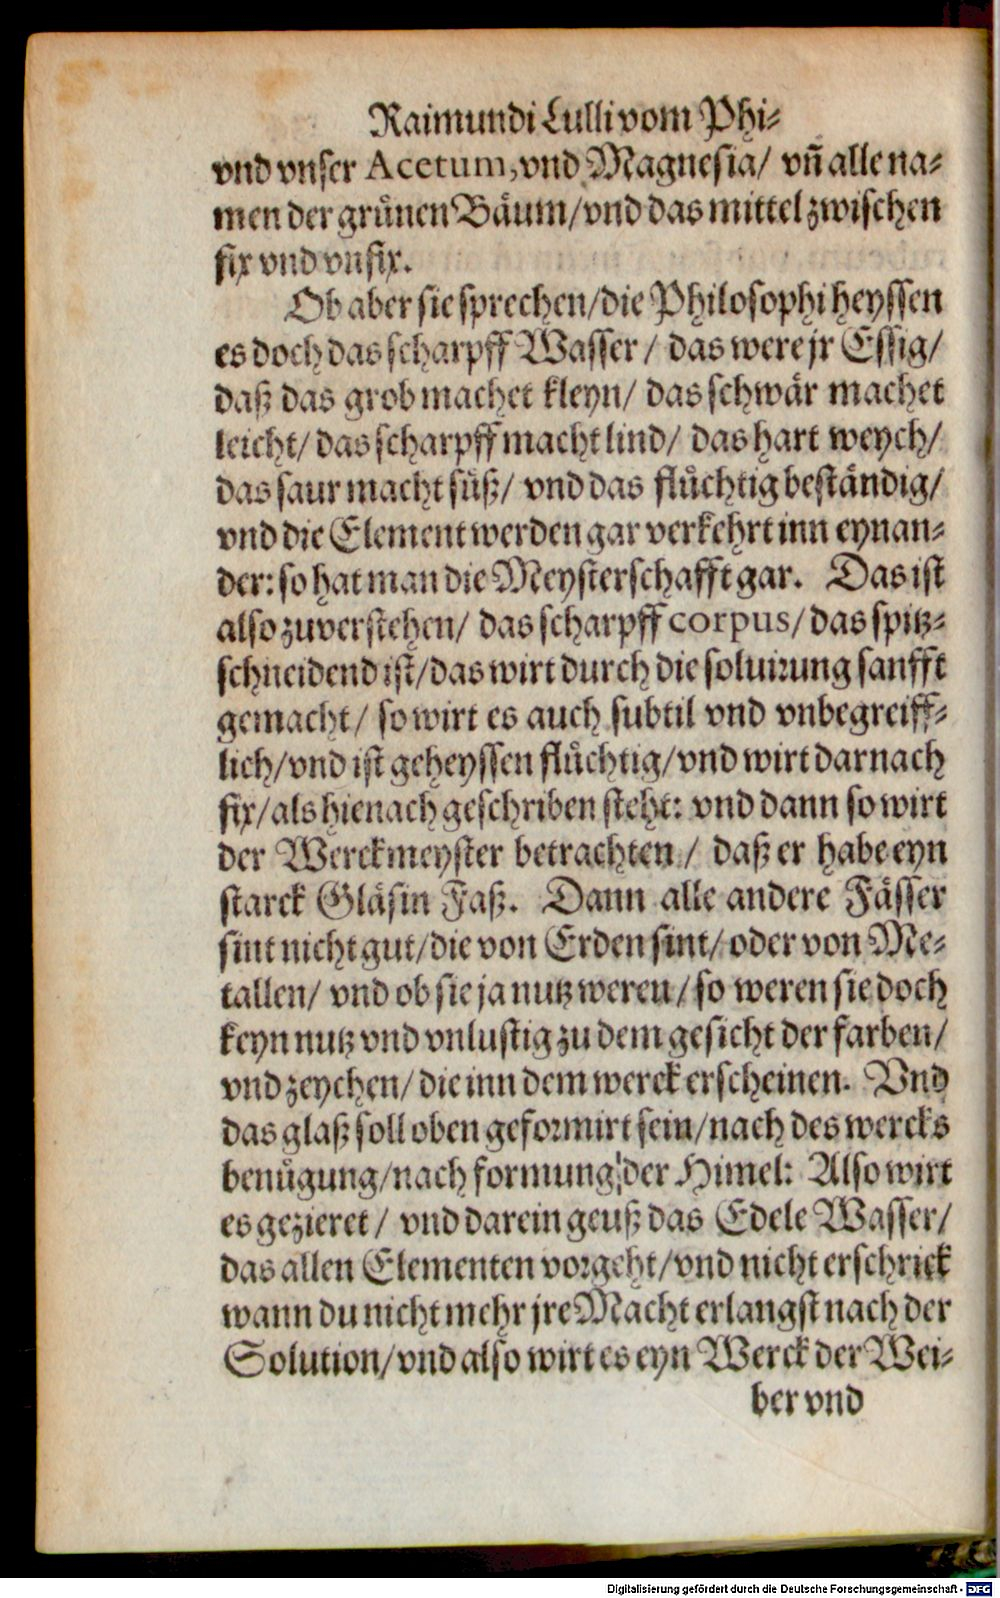 Raimundi Lulli vom Phi-
vnd vnser Acetum, vnd Magnesia/ vñ alle na-
men der grůnen Bäum/ vnd das mittel zwischen
fix vnd vnfix.
Ob aber sie sprechen/ die Philosophi heyssen
es doch das scharpff Wasser/ das were jr Essig/
daß das grob machet kleyn/ das schwår machet
leicht/ das scharpff macht lind/ das hart weych/
das saur macht sůß/ vnd das flůchtig beståndig/
vnd die Element werden gar verkehrt inn eynan-
der: so hat man die Meysterschafft gar. Das ist
also zuverstehen/ das scharpff corpus/ das spitz-
schneidend ist/ das wirt durch die soluirung sanfft
gemacht/ so wirt es auch subtil vnd vnbegreiff-
lich/ vnd ist geheyssen flůchtig/ vnd wirt darnach
fix/ als hienach geschriben steht: vnd dann so wirt
der Werckmeyster betrachten/ daß er habe eyn
starck Glåsin Faß. Dann alle andere Fåsser
sint nicht gut/ die von Erden sint/ oder von Me-
tallen/ vnd ob sie ja nutz weren/ so weren sie doch
keyn nutz vnd vnlustig zu dem gesicht der farben/
vnd zeychen/ die inn dem werck erscheinen. Vnd
das glaß soll oben geformirt sein/ nach des wercks
benůgung/ nach formung der Himel: Also wirt
es gezieret/ vnd darein geuß das Edele Wasser/
das allen Elementen vorgeht/ vnd nicht erschrick
wann du nicht mehr jre Macht erlangst nach der
Solution/ vnd also wirt es eyn Werck der Wei-
ber vnd
Digitalisierung gefördert durch die Deutsche Forschungsgemeinschaft - DFG